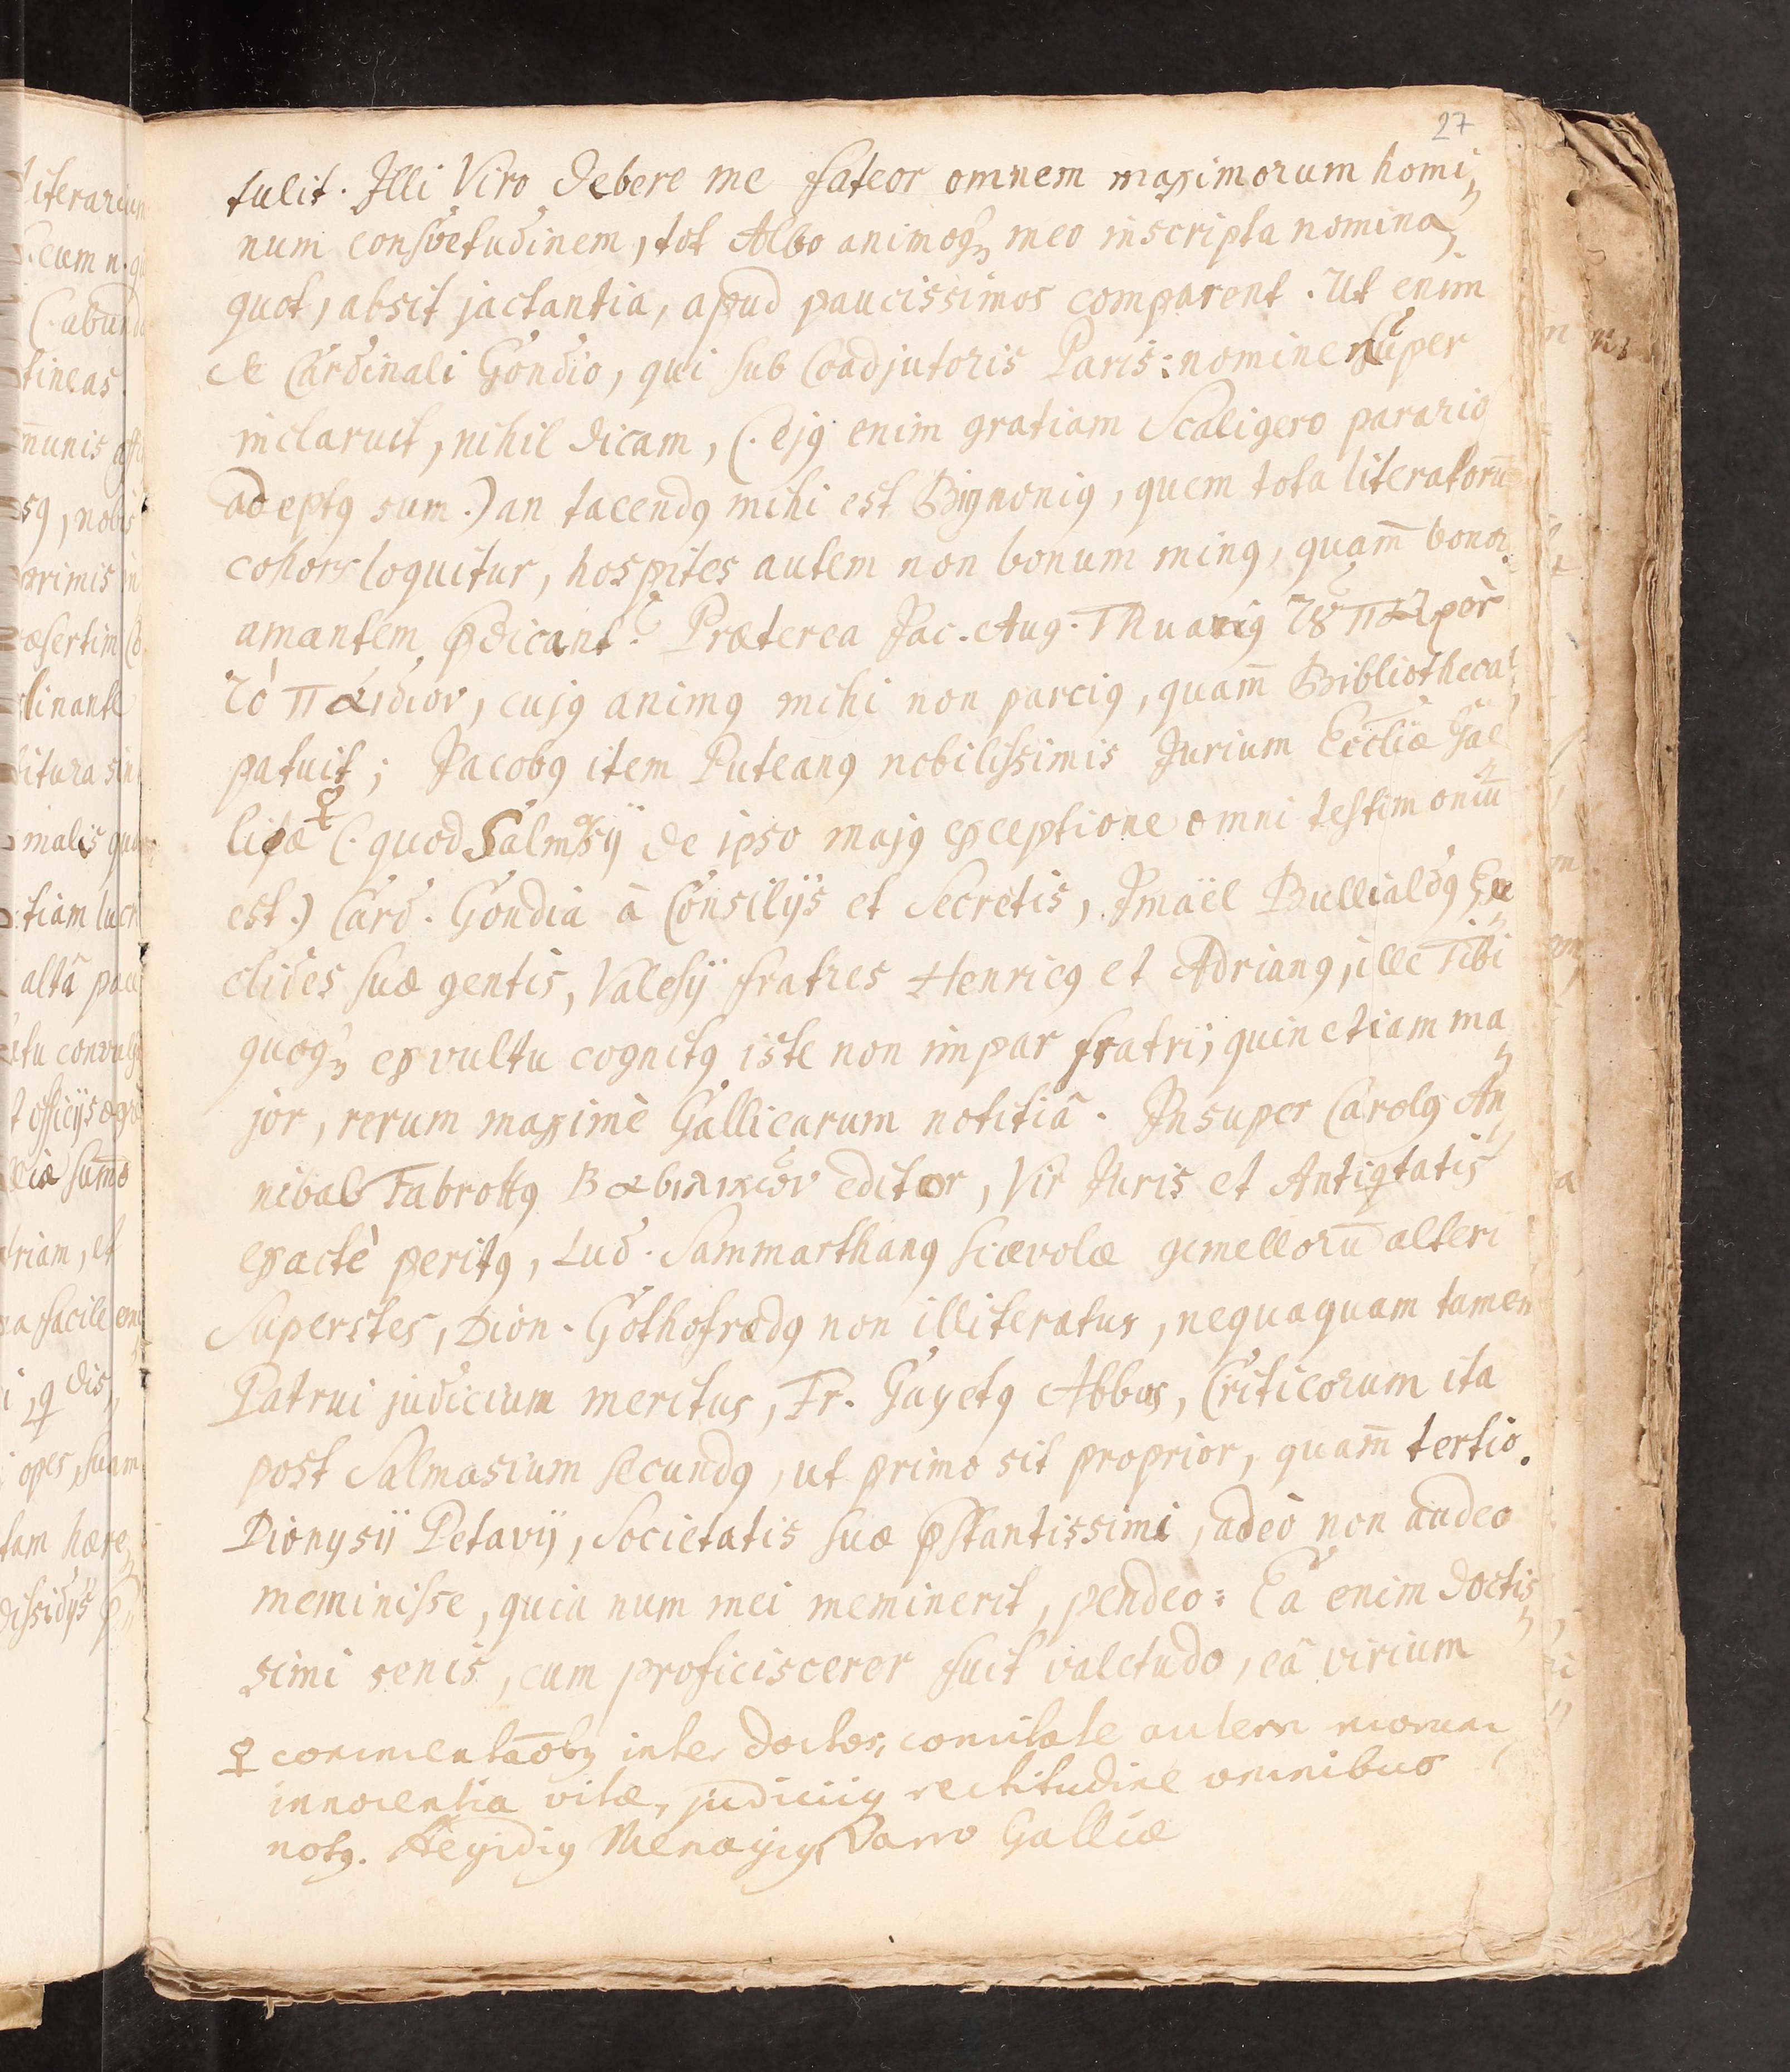 27
tulit. Illi Viro debere me fateor omnem maximorum homi„
num consvetudinem, tot Albo animoq₃ meo inscripta nomina,
quot, absit jactantia, apud paucissimos comparent. Ut enim
de Cardinali Gondio, qui sub Coadjutoris Paris: nomine nuper
inclaruit, nihil dicam, (. ejꝰ enim gratiam Scaligero parario
adeptꝰ sum.) an tacendꝰ mihi est Bignoniꝰ, quem tota literatorū
cohors loquitur, hospites autem non bonum minꝰ, quam̄ bonor.
amantem p̄dicant? Præterea Jac. Aug. Thuaniꝰ τȣ̃ πάνυ
τὸ παιδίον, cujꝰ animꝰ mihi non parciꝰ, quam̄ Bibliotheca
patuit; Jacobꝰ item Puteanꝰ nobilissimis Jurium Eccliæ Gal„
licæ ♀ (. quod Salmasij de ipso majꝰ exceptione omni testimoniū
est.) Card. Gondia à Consilijs et Secretis, Jmaël Bullialdꝰ Eu„
clides suæ gentis, Valesij fratres Henricꝰ et Adrianꝰ, ille Tibi
quoq₃ ex vultu cognitꝰ iste non impar fratri, quin etiam ma„
jor, rerum maximè Gallicarum notitiâ. Insuper Carolꝰ An„
nibal Fabrottꝰ Βασιλικῶν editor, Vir Juris et Antiqtatis
exactè peritꝰ, Lud. Sammarthanꝰ Scævolæ gemellorū alteri
Superstes, Dion. Gothofrædꝰ non illiteratus, nequaquam tamen
Patrui judicium meritus, Fr. Guyetꝰ Abbas, Criticorum ita
post Salmasium secundꝰ, ut primo sit proprior, quam̄ tertio.
Dionysii Petavij, Societatis suæ p̄stantissimi, adeò non audeo
meminisse, quia num mei meminerit, pendeo: Ea enim doctis„
simi senis, cum proficiscerer fuit valetudo, eâ virium
♀ commentaōbꝫ inter doctos, comitate autem morum,
innocentia vitæ, judiciiq₃ rectitudine omnibus
notꝰ. Aegidiꝰ Menagiꝰ, Varro Galliæ